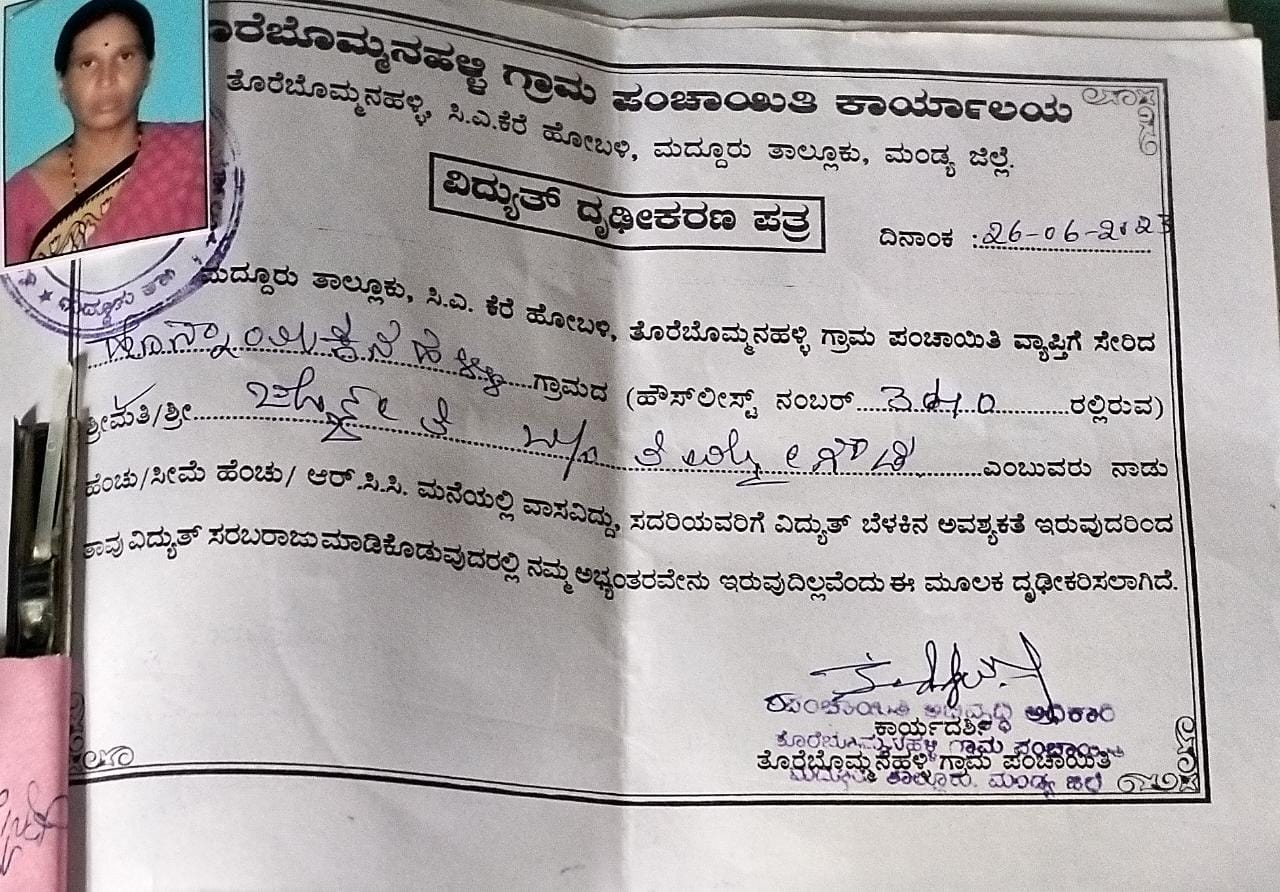 ತೊರೆಬೊಮ್ಮನಹಳ್ಳಿ ಗ್ರಾಮ ಪಂಚಾಯಿತಿ ಕಾರ್ಯಾಲಯ
ತೊರೆಬೊಮ್ಮನಹಳ್ಳಿ, ಸಿ.ಎ.ಕೆರೆ ಹೋಬಳಿ, ಮದ್ದೂರು ತಾಲ್ಲೂಕು, ಮಂಡ್ಯ ಜಿಲ್ಲೆ.
ವಿದ್ಯುತ್ ದೃಢೀಕರಣ ಪತ್ರ
ದಿನಾಂಕ : 26-06-2023
ಮದ್ದೂರು ತಾಲ್ಲೂಕು, ಸಿ.ಎ. ಕೆರೆ ಹೋಬಳಿ, ತೊರೆಬೊಮ್ಮನಹಳ್ಳಿ ಗ್ರಾಮ ಪಂಚಾಯಿತಿ ವ್ಯಾಪ್ತಿಗೆ ಸೇರಿದ
ಗ್ರಾಮದ (ಹೌಸ್‌ಲೀಸ್ಟ್ ನಂಬರ್ ರಲ್ಲಿರುವ)
ಶ್ರೀಮತಿ/ಶ್ರೀ W/o ಎಂಬುವರು ನಾಡು
ಹೆಂಚು/ಸೀಮೆ ಹೆಂಚು/ ಆರ್.ಸಿ.ಸಿ. ಮನೆಯಲ್ಲಿ ವಾಸವಿದ್ದು, ಸದರಿಯವರಿಗೆ ವಿದ್ಯುತ್ ಬೆಳಕಿನ ಅವಶ್ಯಕತೆ ಇರುವುದರಿಂದ
ತಾವು ವಿದ್ಯುತ್ ಸರಬರಾಜು ಮಾಡಿಕೊಡುವುದರಲ್ಲಿ ನಮ್ಮ ಅಭ್ಯಂತರವೇನು ಇರುವುದಿಲ್ಲವೆಂದು ಈ ಮೂಲಕ ದೃಢೀಕರಿಸಲಾಗಿದೆ.
ಪಂಚಾಯಿತಿ ಅಭಿವೃದ್ಧಿ ಅಧಿಕಾರಿ
ಕಾರ್ಯದರ್ಶಿ
ತೊರೆಬೊಮ್ಮನಹಳ್ಳಿ ಗ್ರಾಮ ಪಂಚಾಯಿತಿ
ತೊರೆಬೊಮ್ಮನಹಳ್ಳಿ ಗ್ರಾಮ ಪಂಚಾಯಿತಿ
ಮದ್ದೂರು ತಾಲ್ಲೂಕು. ಮಂಡ್ಯ ಜಿಲ್ಲೆ